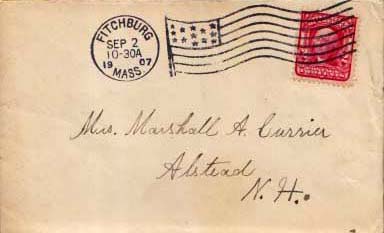 FITCHBURG
SEP 2
10-30A
1907
MASS.
Mrs. Marshall A. Currier
Alstead
N. H.